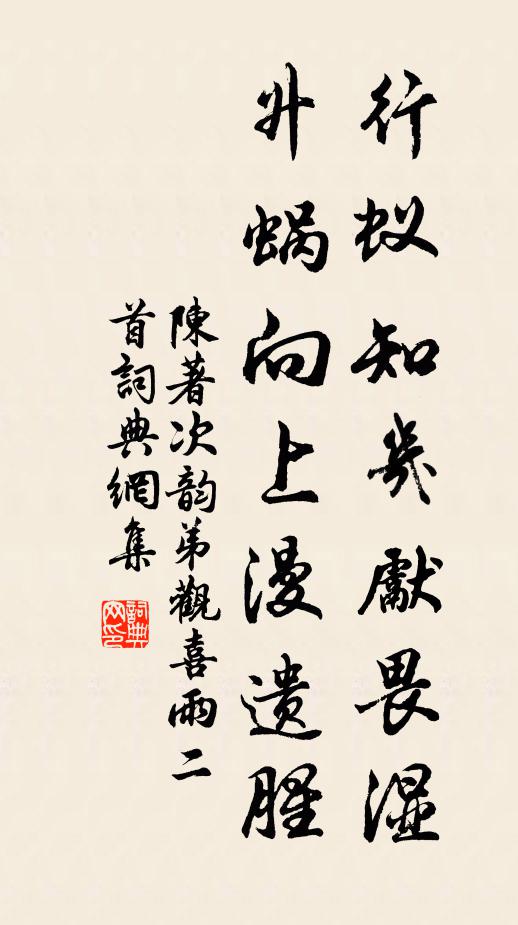 行蚁知幾獻畏湿
升蜗向上漫遗腥
陳著次韵弟觀喜雨二
首詞典網集
詞典网印